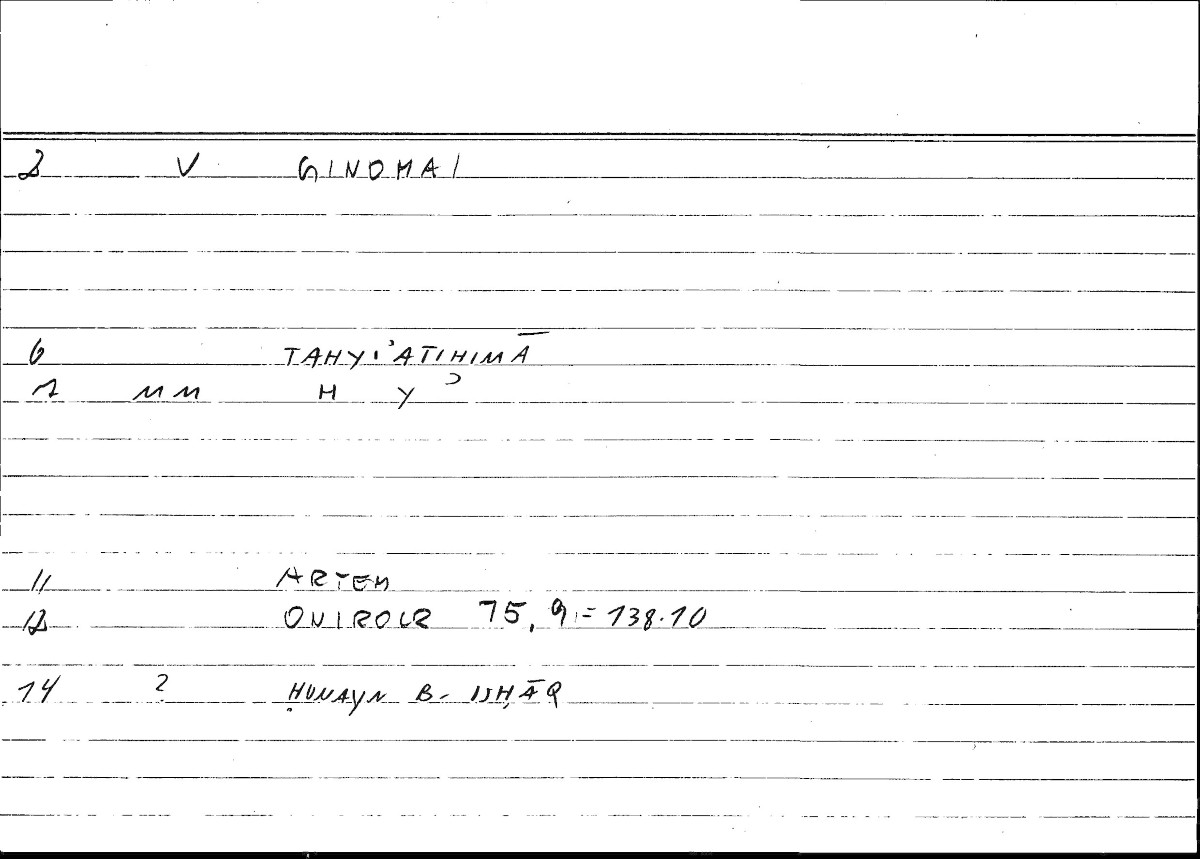 2 V GINOMAI
6 TAHYI'ATIHIMĀ
7 MM H Y ʾ
11 ARTEM
12 ONIROCR 75, 9 = 138.10
14 2 ḤUNAYN B- ISḤĀQ